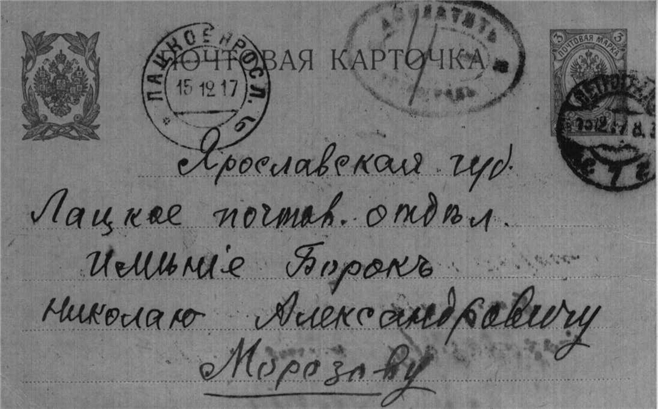 ПОЧТОВАЯ КАРТОЧКА
ДОПЛАТИТЬ
3 ПОЧТОВАЯ МАРКА 3
ЛАЦКОЕ ЯРОСЛ. Г.
15 12 17
Ярославская губ.
Лацкое почтов. отдѣл.
Имѣніе Борокъ
Николаю Александровичу
Морозову